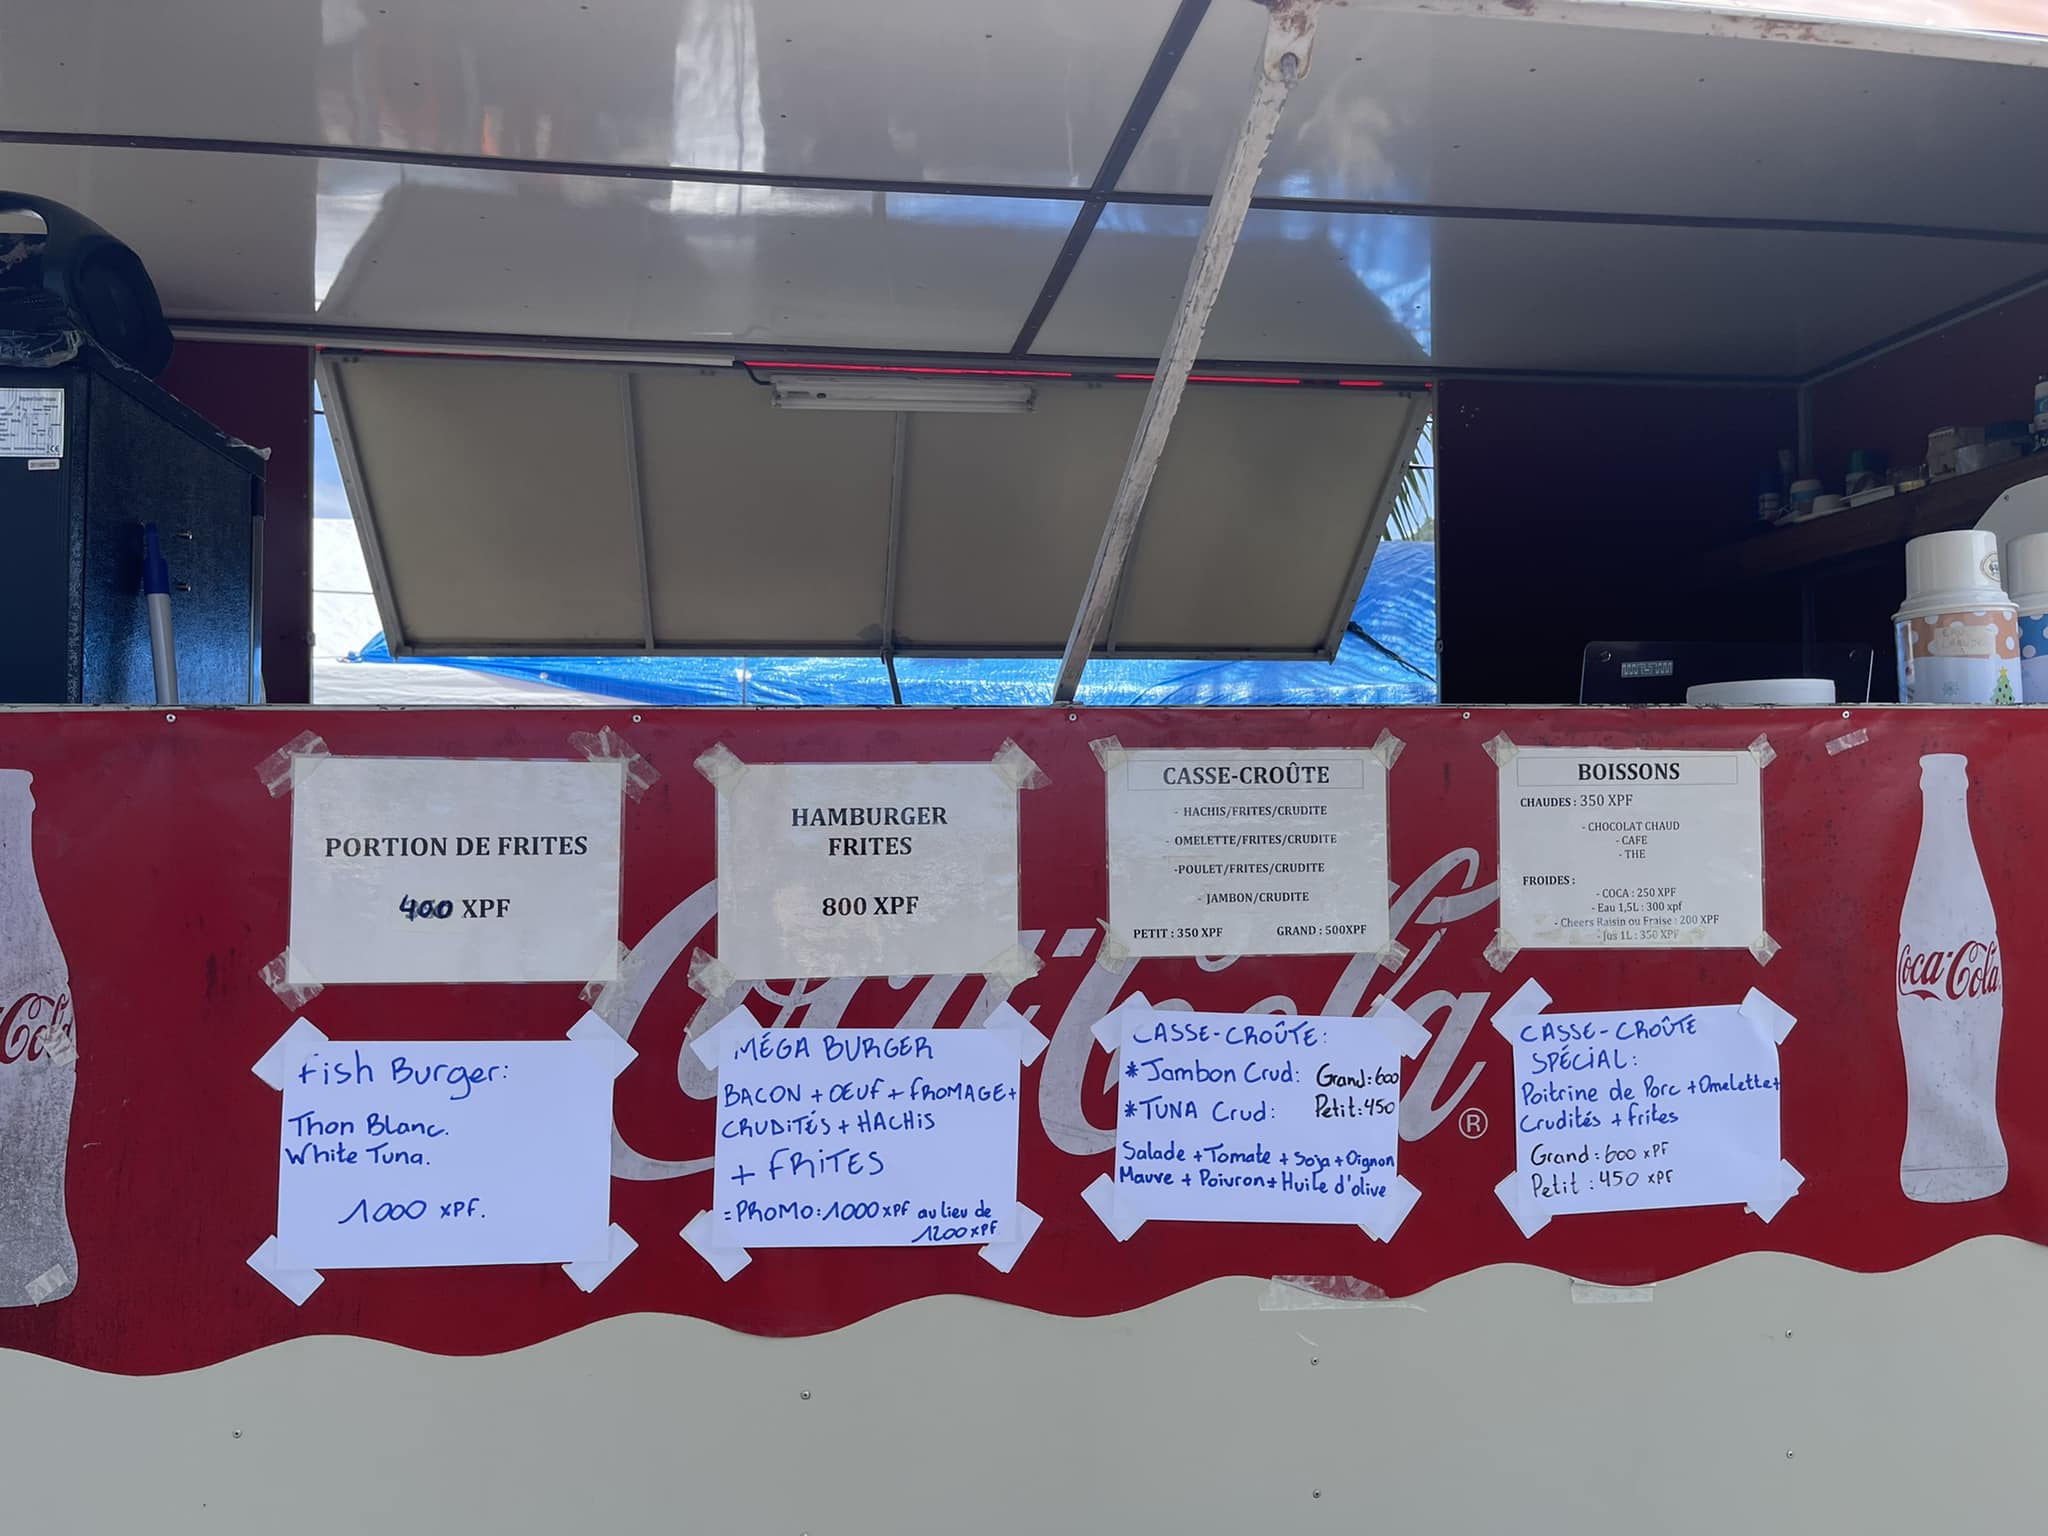 PORTION DE FRITES
400 XPF
HAMBURGER
FRITES
800 XPF
CASSE-CROÛTE
- HACHIS/FRITES/CRUDITE
- OMELETTE/FRITES/CRUDITE
-POULET/FRITES/CRUDITE
- JAMBON/CRUDITE
PETIT : 350 XPF GRAND : 500XPF
BOISSONS
CHAUDES : 350 XPF
- CHOCOLAT CHAUD
- CAFE
- THE
FROIDES :
- COCA : 250 XPF
- Eau 1,5L : 300 xpf
- Cheers Raisin ou Fraise : 200 XPF
- Jus 1L : 350 XPF
Fish Burger:
Thon Blanc.
White Tuna.
1000 XPF.
MÉGA BURGER
BACON + OEUF + FROMAGE +
CRUDITÉS + HACHIS
+ FRITES
= PROMO : 1000 XPF au lieu de
1200 XPF
CASSE-CROÛTE:
* Jambon Crud: Grand: 600
* TUNA Crud: Petit: 450
Salade + Tomate + Soja + Oignon
Mauve + Poivron + Huile d'olive
CASSE-CROÛTE
SPÉCIAL:
Poitrine de Porc + Omelette +
Crudités + frites
Grand : 600 XPF
Petit : 450 XPF
Coca-Cola ®
Coca-Cola
Coca-Cola